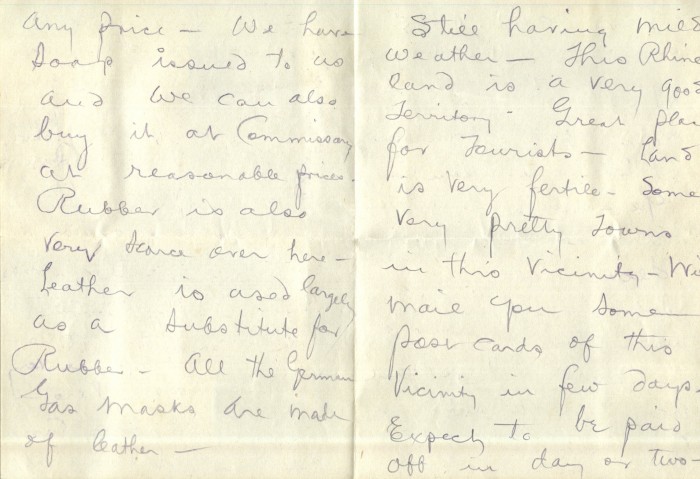 any price — We have
Soap issued to us
and we can also
buy it at Commissary
at reasonable prices.
Rubber is also
very scarce over here —
Leather is used largely
as a substitute for
Rubber — All the German
Gas masks are made
of leather —
Still having mild
weather — This Rhine
land is a very good
Territory — Great place
for Tourists — Land
is very fertile — Some
very pretty Towns
in this vicinity — Wi
mail you some
post cards of this
vicinity in few days.
Expect to be paid
off in day or two —